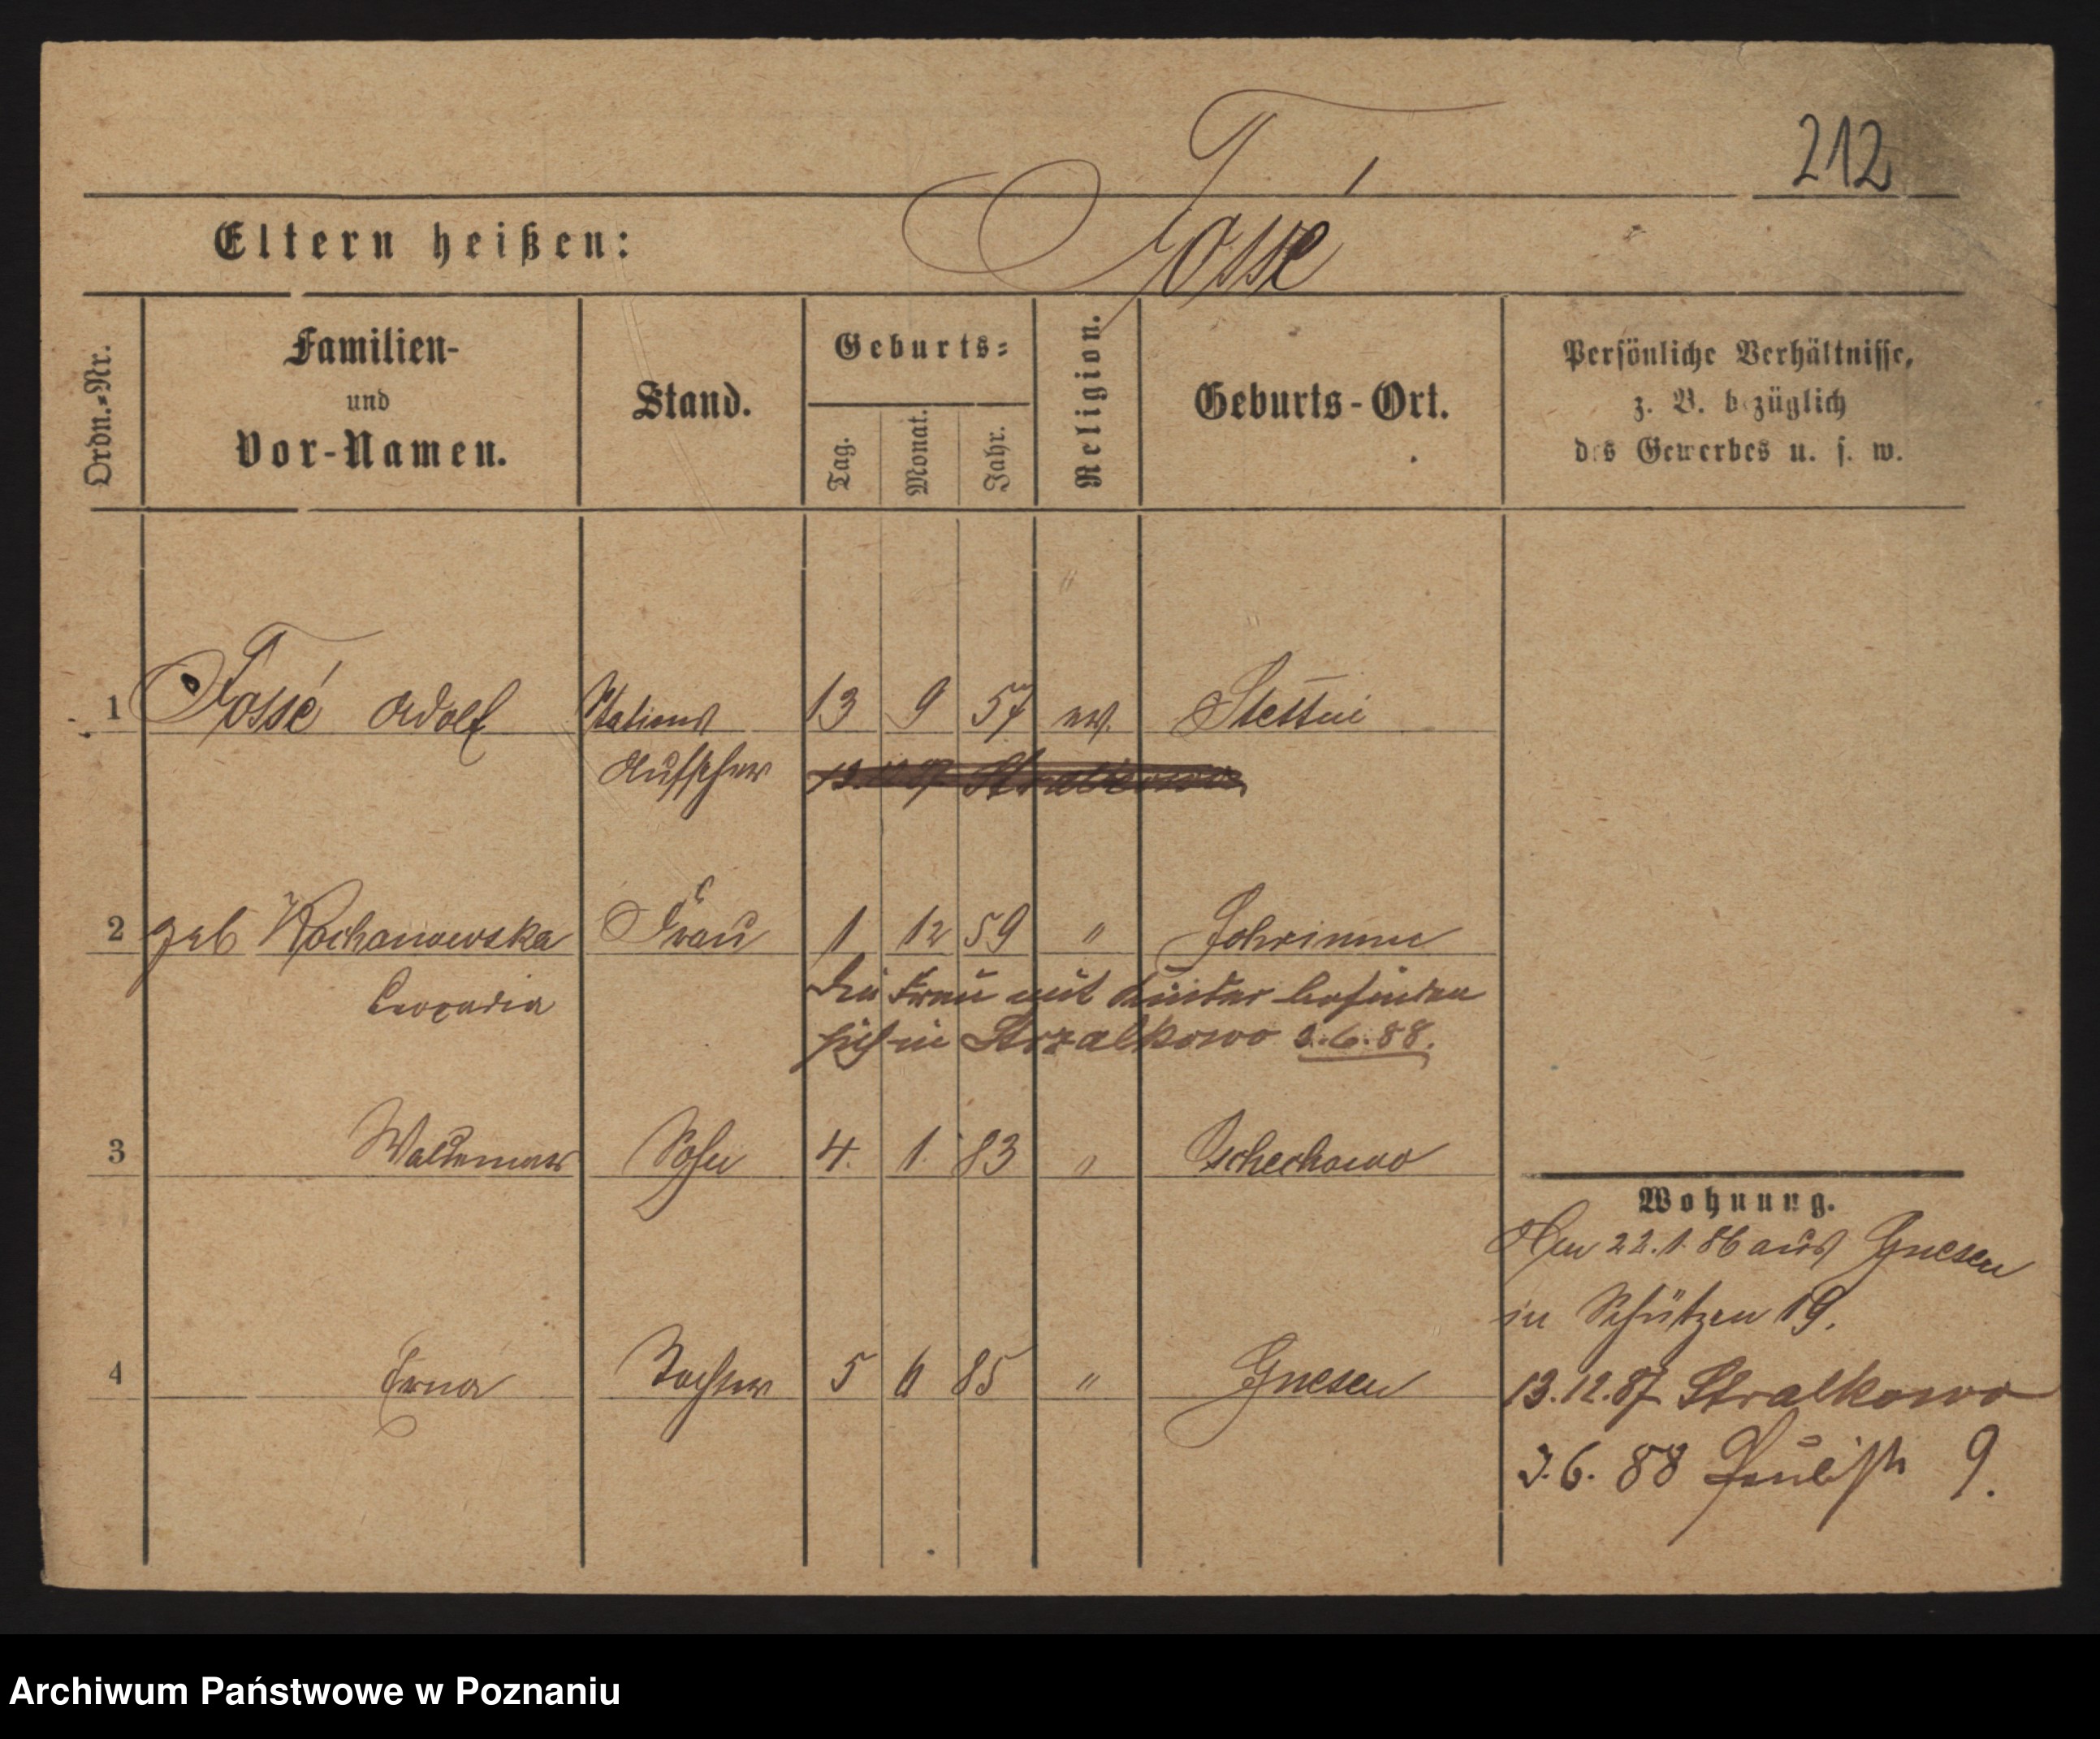 212
Eltern heißen: Fossé
Ordn.-Nr.
Familien-
und
Vor-Namen.
Stand.
Geburts-
Tag.
Monat.
Jahr.
Religion.
Geburts-Ort.
Persönliche Verhältnisse,
z. B. bezüglich
des Gewerbes u. s. w.
1 Fossé Adolf Stations 13 9 57 ev. Stettin
Aufseher
2 geb Kochanowska Frau 1 12 59 "
Leocadia
Die Frau mit Kinder befinden
sich in Strzalkowo 3.6.88.
3 Waldemar Sohn 4. 1. 83 " Tschechowo
4 Erna Tochter 5 6 85 " Gnesen
Wohnung.
Am 22.1.86 aus Gnesen
in Schützen 19.
13.12.87 Stralkowo
3.6.88 Paulist 9.
Archiwum Państwowe w Poznaniu